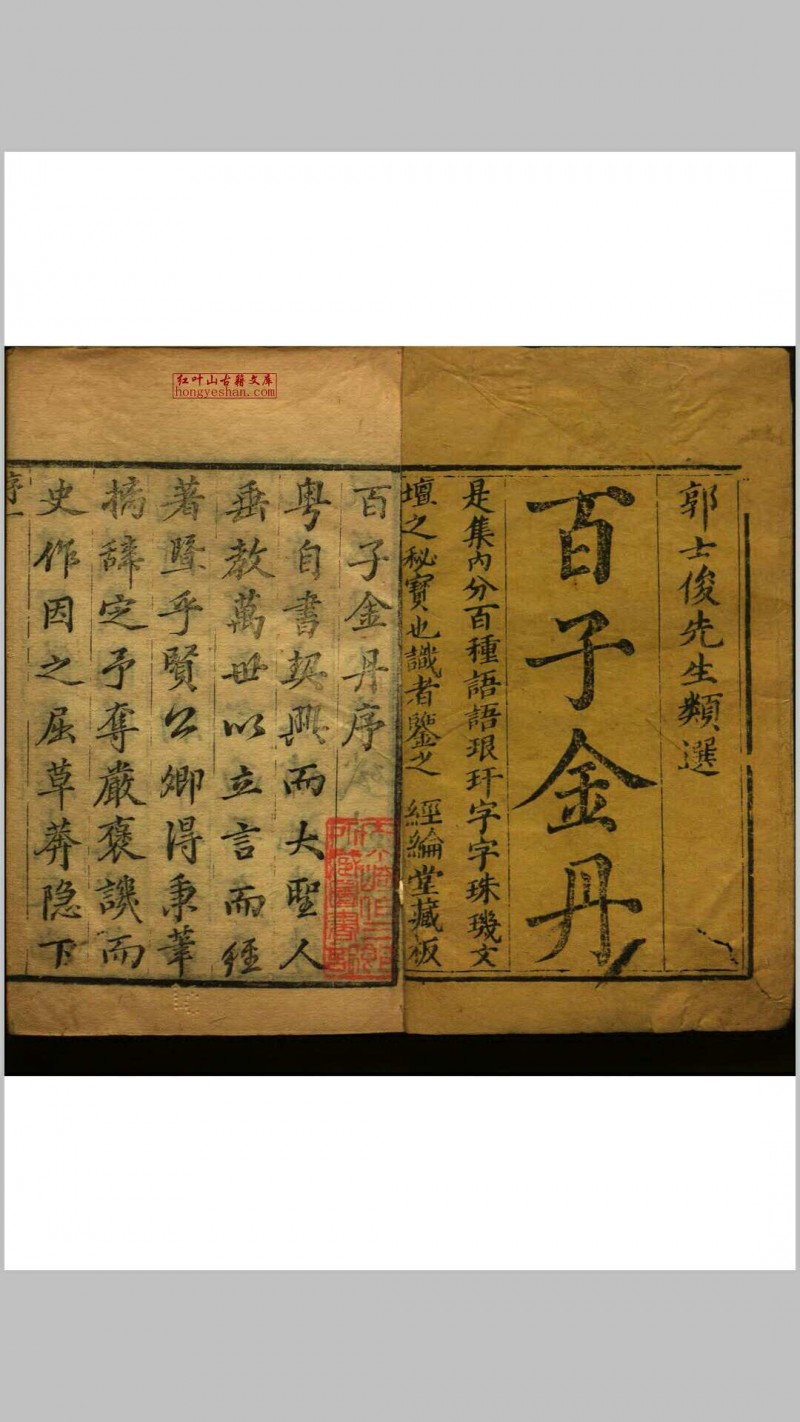 红叶山古籍文库
hongyeshan.com
郭士俊先生類選
百子金丹
是集內分百種語語琅玕字字珠璣文
壇之秘寶也識者鑒之 經綸堂藏板
百子金丹序
粤自書契興而大聖人
垂教萬世以立言而經
著暨乎賢公卿得秉筆
摛辭定予奪嚴褒譏而
史作因之屈草莽隐下
序一